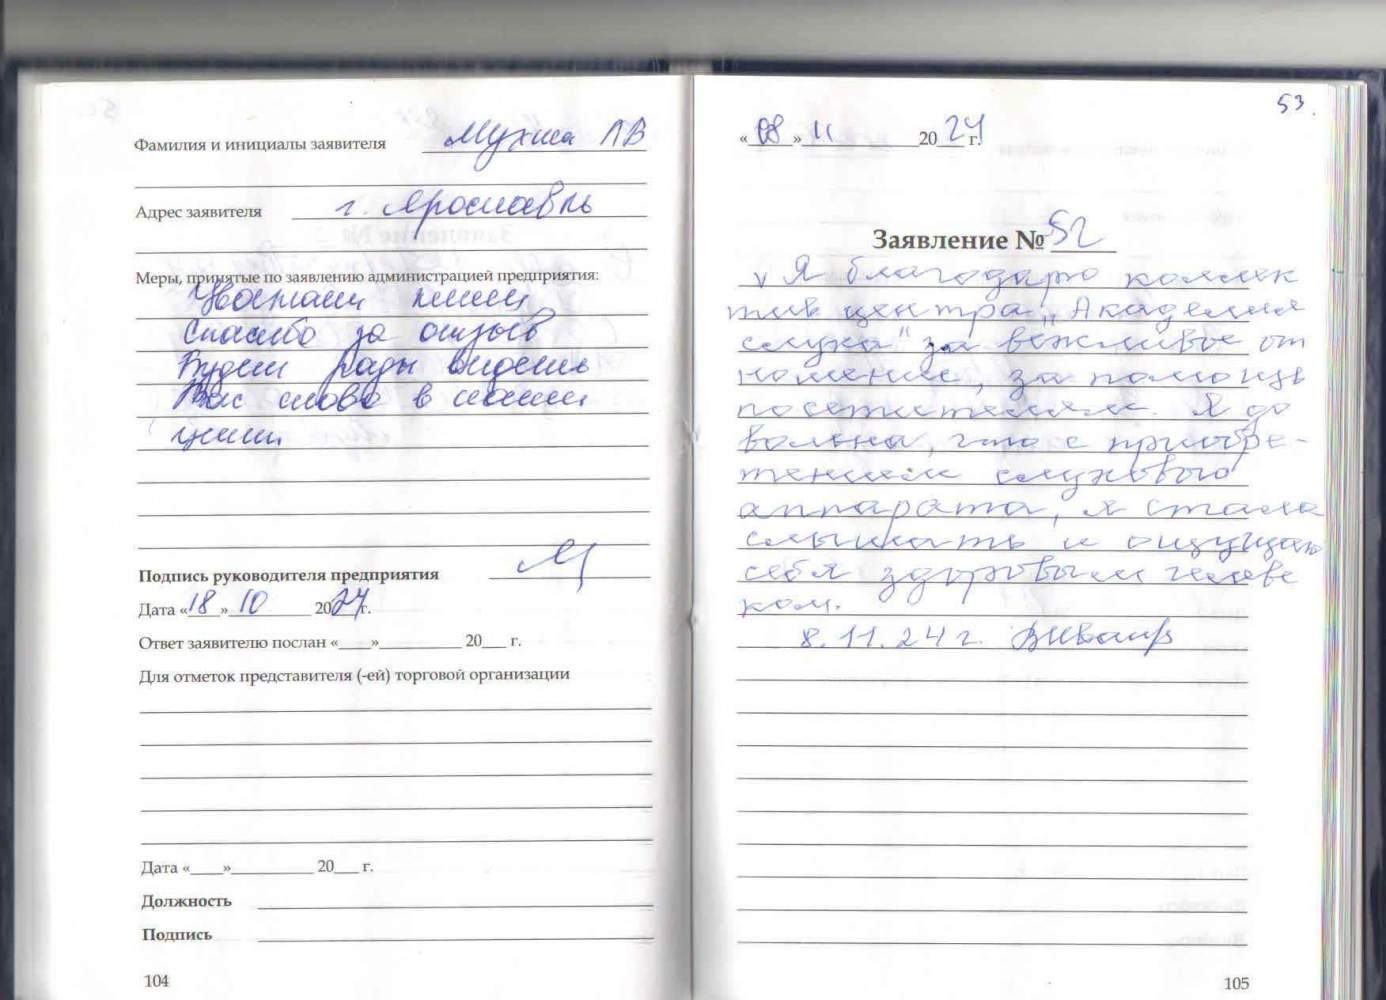 Фамилия и инициалы заявителя Мухина ЛВ
Адрес заявителя г. Ярославль
Меры, принятые по заявлению администрацией предприятия:
Спасибо за отзыв
Будем рады видеть
Вас снова в нашем
Подпись руководителя предприятия
Дата «18» 10 2024г.
Ответ заявителю послан «___»__________ 20___ г.
Для отметок представителя (-ей) торговой организации
Дата «____»__________ 20___ г.
Должность
Подпись
104
53
«08» 11 2024 г.
Заявление № 52
Я благодарю коллек
тив центра „Академия
слуха" за вежливое от
ношение, за помощь
посетителям. Я до
вольна, что с приобре-
тением слухового
аппарата, я стала
слышать и ощущаю
себя здоровым челове
ком.
8.11.24 г.
105